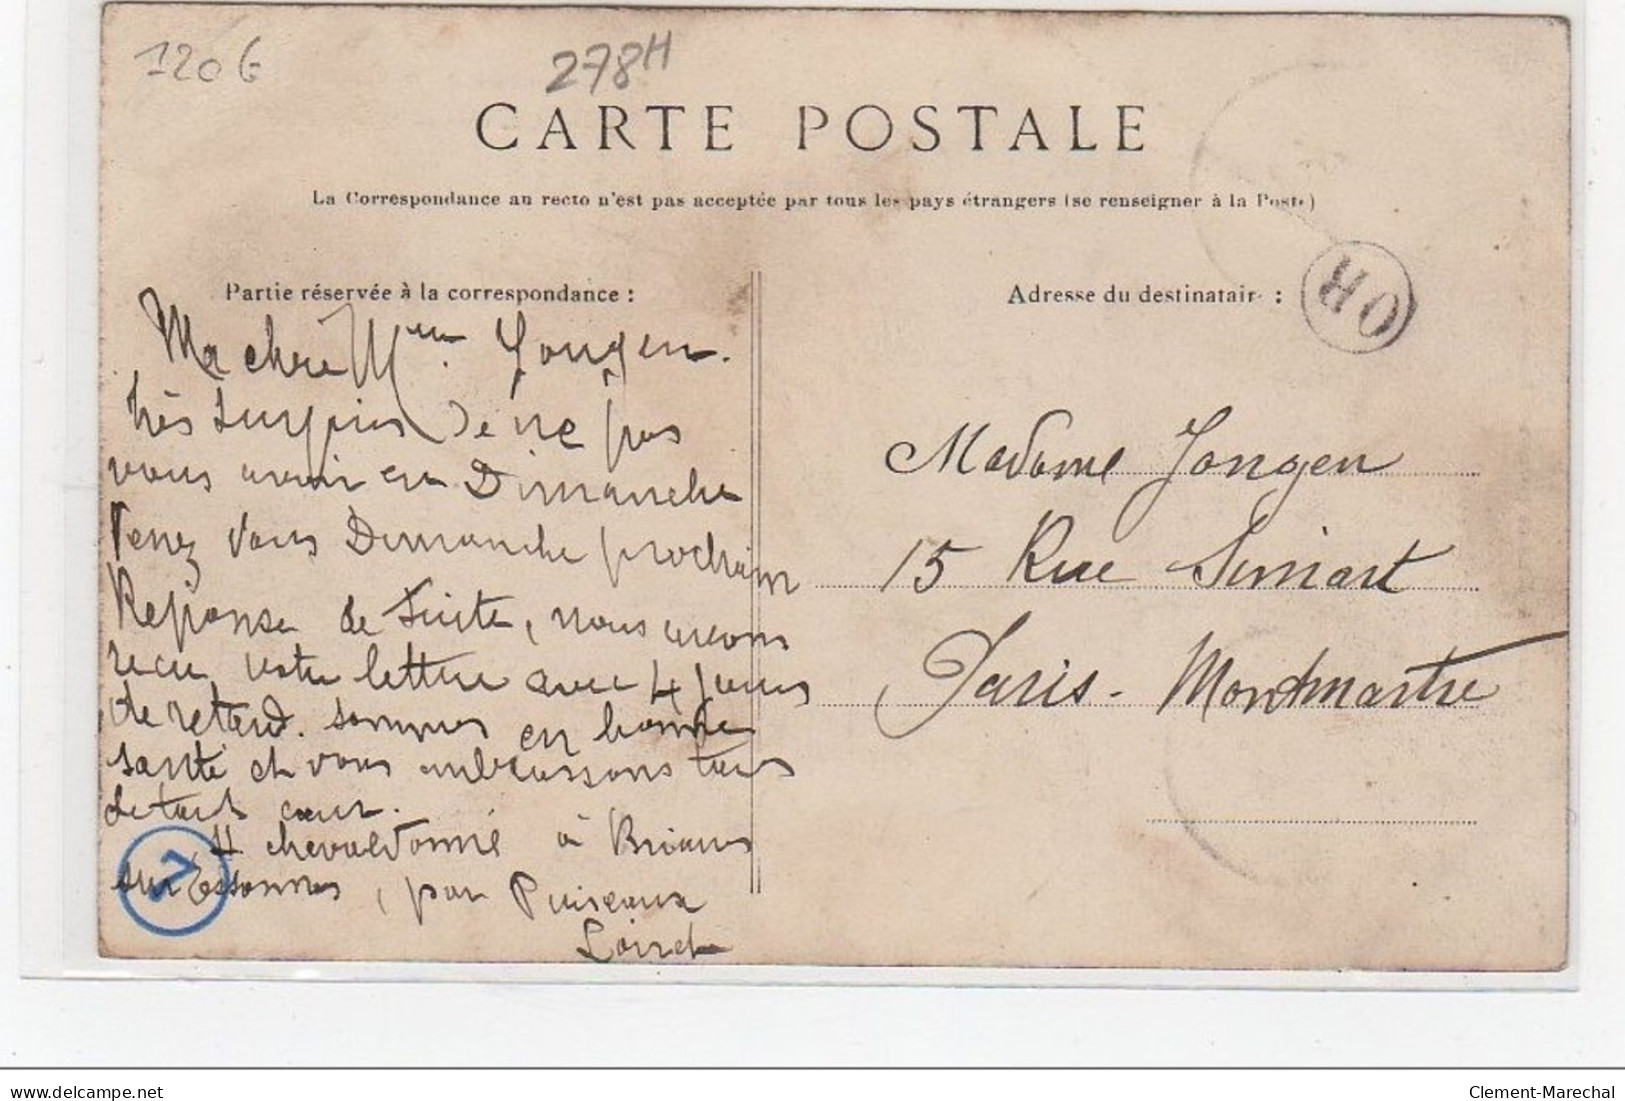 120 G
278H
CARTE POSTALE
La Correspondance au recto n'est pas acceptée par tous les pays étrangers (se renseigner à la Poste)
Partie réservée à la correspondance :
Ma chère Mme Jongen.
très surpris de ne pas
vous avoir eu Dimanche
Venez vous Dimanche prochain
Réponse de suite, nous avons
recu votre lettre avec 4 jours
de retard. sommes en bonne
santé et vous embrassons tous
de tout cœur.
H chevaldonné à Briares
sur Essonnes, par Puiseaux
Loiret
7
Adresse du destinatair :
OR
Madame Jongen
15 Rue Simart
Paris - Montmartre
delcampe.net
Clement-Marechal